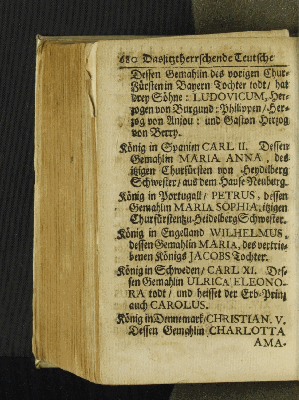 680 Das ſitztherrſchende Teutſche
Deſſen Gemahlin des vorigen Chur-
Fürſten in Bayern Tochter todt/ hat
drey Söhne: LUDOVICUM, Her-
zogen von Burgund: Philippen/ Her-
zog von Anjou: und Gaſton Herzog
von Berry.
König in Spanien CARL II. Deſſen
Gemahlin MARIA ANNA, des
itzigen Churfürſten von Heydelberg
Schweſter/ aus dem Hauſe Neuburg.
König in Portugall/ PETRUS, deſſen
Gemahlin MARIA SOPHIA, itzigen
Churfürſten zu Heidelberg Schweſter.
König in Engelland WILHELMUS,
deſſen Gemahlin MARIA, des vertrie-
benen Königs JACOBS Tochter.
König in Schweden/ CARL XI. Deſ-
ſen Gemahlin ULRICA ELEONO-
RA todt/ und heiſſet der Erb-Prinz
auch CAROLUS.
König in Dennemark/ CHRISTIAN. V.
Deſſen Gemahlin CHARLOTTA
AMA-